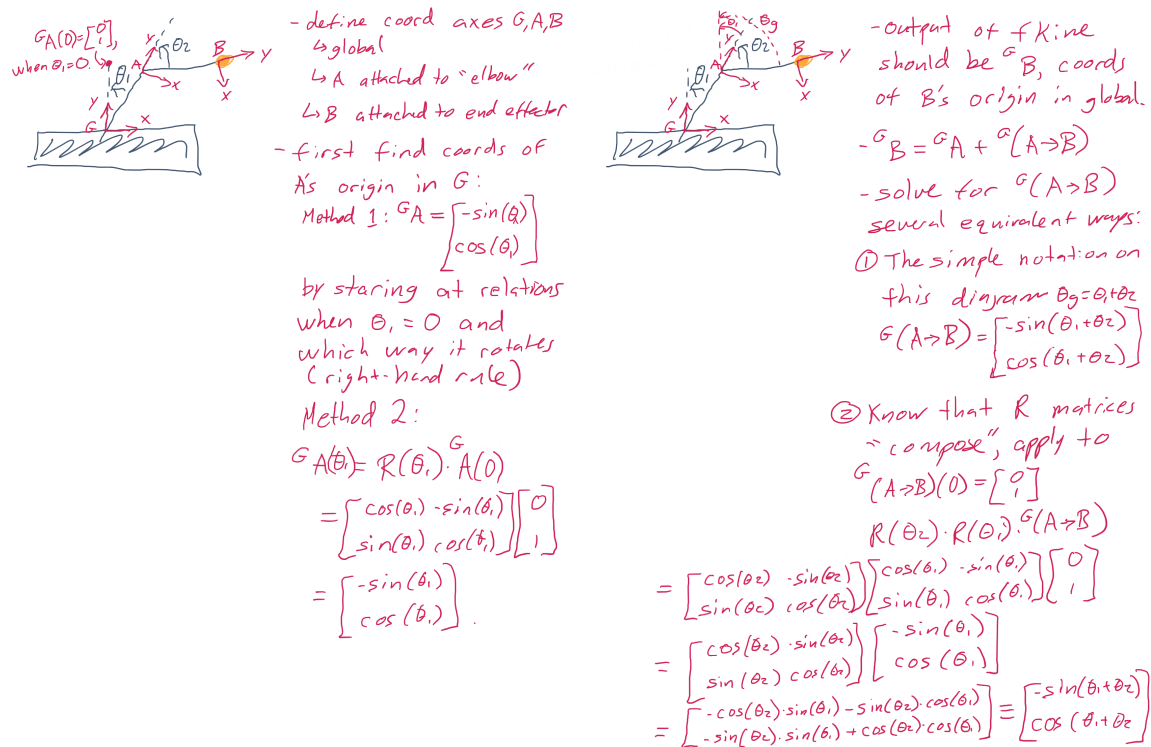 GA(0)=[0 1],
when θ1=0.
θ1
A
Y
θ2
B
Y
X
X
Y
G
X
- define coord axes G,A,B
↳ global
↳ A attached to "elbow"
↳ B attached to end effector
- first find coords of
A's origin in G:
Method 1: ᴳA = [-sin(θ1)
cos(θ1)]
by staring at relations
when θ1 = 0 and
which way it rotates
(right-hand rule)
Method 2:
ᴳA(θ1) = R(θ1)·ᴳA(0)
= [cos(θ1) -sin(θ1)
sin(θ1) cos(θ1)] [0
1]
= [-sin(θ1)
cos(θ1)].
θ1
θg
Y
A
θ2
B
Y
X
X
Y
G
X
- output of fkine
should be ᴳB, coords
of B's origin in global.
- ᴳB = ᴳA + ᴳ(A→B)
- solve for ᴳ(A→B)
several equivalent ways:
① The simple notation on
this diagram θg=θ1+θ2
ᴳ(A→B) = [-sin(θ1+θ2)
cos(θ1+θ2)]
② Know that R matrices
"compose", apply to
ᴳ(A→B)(0) = [0
1]
R(θ2)·R(θ1)·ᴳ(A→B)
= [cos(θ2) -sin(θ2)
sin(θ2) cos(θ2)] [cos(θ1) -sin(θ1)
sin(θ1) cos(θ1)] [0
1]
= [cos(θ2) -sin(θ2)
sin(θ2) cos(θ2)] [-sin(θ1)
cos(θ1)]
= [-cos(θ2)·sin(θ1) - sin(θ2)·cos(θ1)
-sin(θ2)·sin(θ1) + cos(θ2)·cos(θ1)] ≡ [-sin(θ1+θ2)
cos(θ1+θ2]